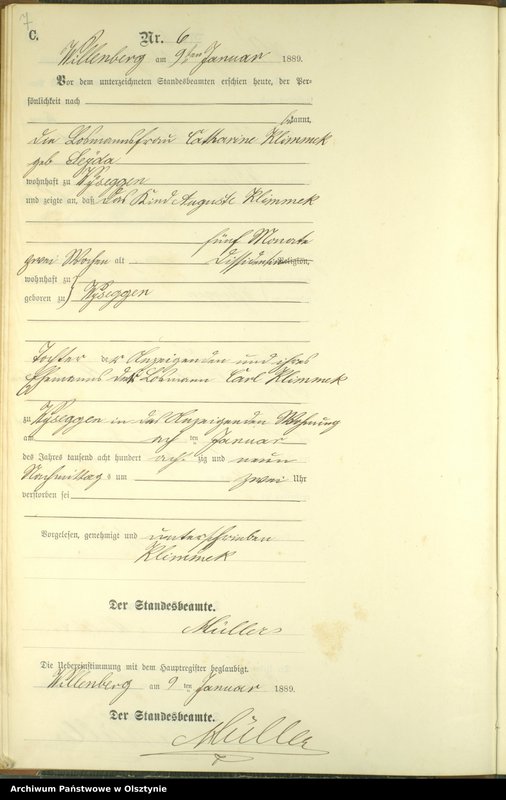 7
C.
Nr. 6
Willenberg am 9ten Januar 1889.
Vor dem unterzeichneten Standesbeamten erschien heute, der Per-
sönlichkeit nach
kannt,
die Losmannsfrau Catharine Klimmek
geb Seyda
wohnhaft zu Wyseggen
und zeigte an, daß das Kind Auguste Klimmek
fünf Monate
zwei Wochen alt Dissidenten Religion,
wohnhaft zu
geboren zu Wyseggen
Tochter der Anzeigenden und ihres
Ehemanns des Losmann Carl Klimmek
zu Wyseggen in der Anzeigenden Wohnung
am acht ten Januar
des Jahres tausend acht hundert acht zig und neun
Nachmittags um zwei Uhr
verstorben sei
Vorgelesen, genehmigt und unterschrieben
Klimmek
Der Standesbeamte.
Müller
Die Uebereinstimmung mit dem Hauptregister beglaubigt.
Willenberg am 9 ten Januar 1889.
Der Standesbeamte.
Müller
Archiwum Państwowe w Olsztynie